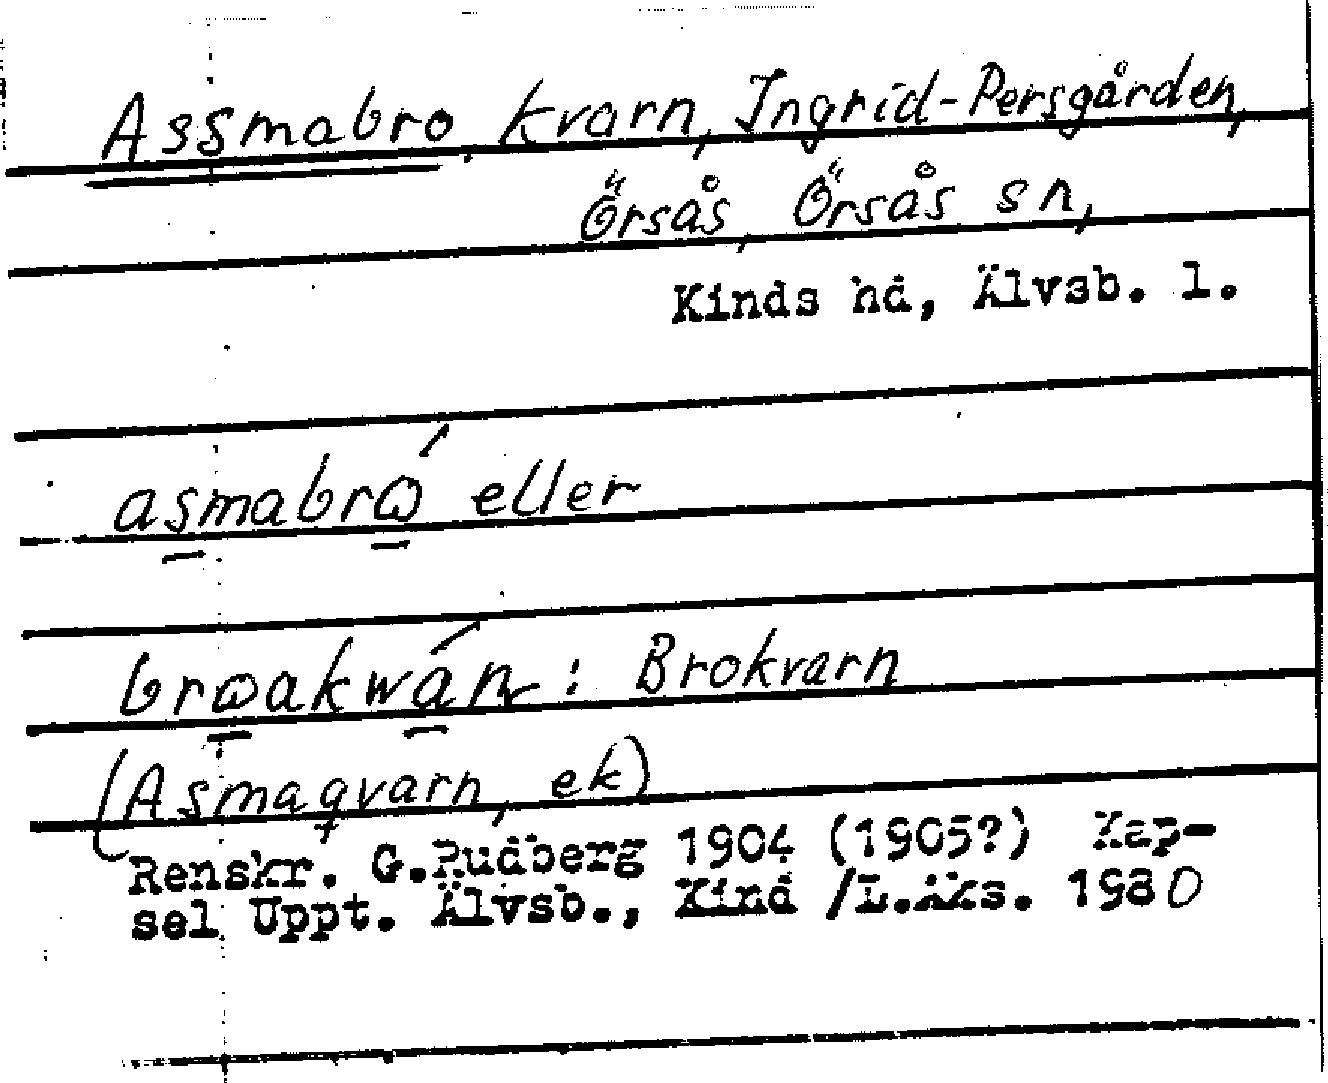 Assmabro, kvarn, Ingrid-Persgården,
Örsås, Örsås sn,
Kinds hd, Älvsb. l.
asmabrώ eller
brωakwán: Brokvarn
(Asmaqvarn, ek)
Renskr. G.Rudberg 1904 (1905?) Kap-
sel Uppt. Älvsb., Kind /L.Aks. 1980